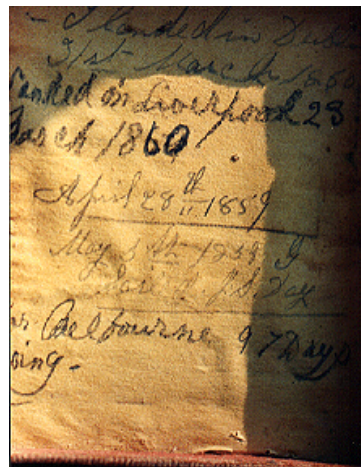 - I landed in Dubl
31st March 1860
Landed in Liverpool 28
March 1860
April 28th 1859
May 5th 1859 I
Day
Melbourne 97 Days
oing-